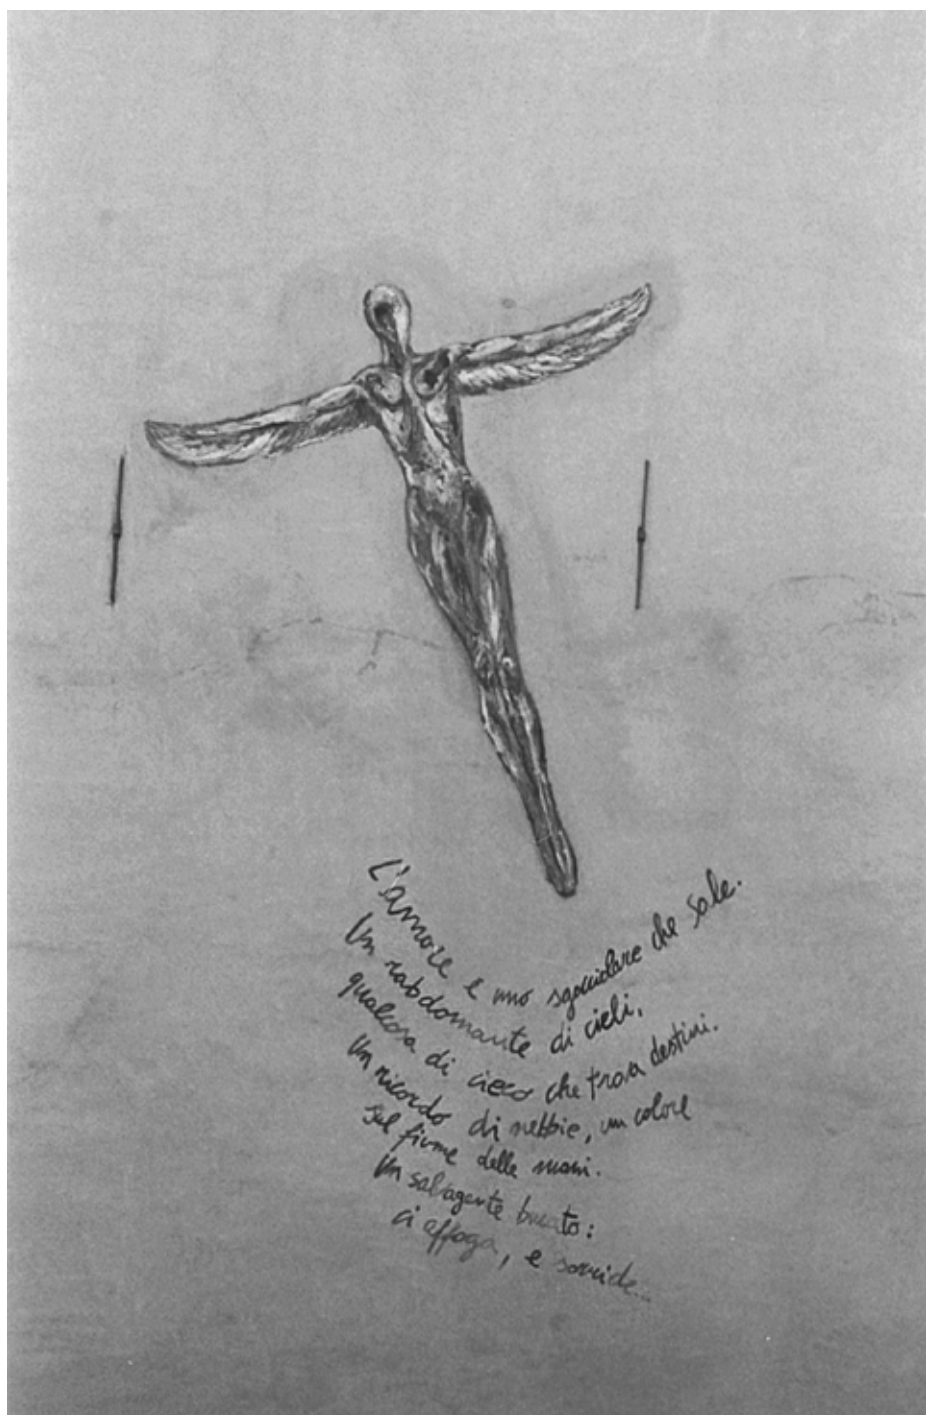 L'amore è uno sgocciolare che sale.
Un rabdomante di cieli,
qualcosa di cieco che trova destini.
Un ricordo di nebbie, un colore
sul fiume delle mani.
Un salvagente bucato:
ci affoga, e sorride...